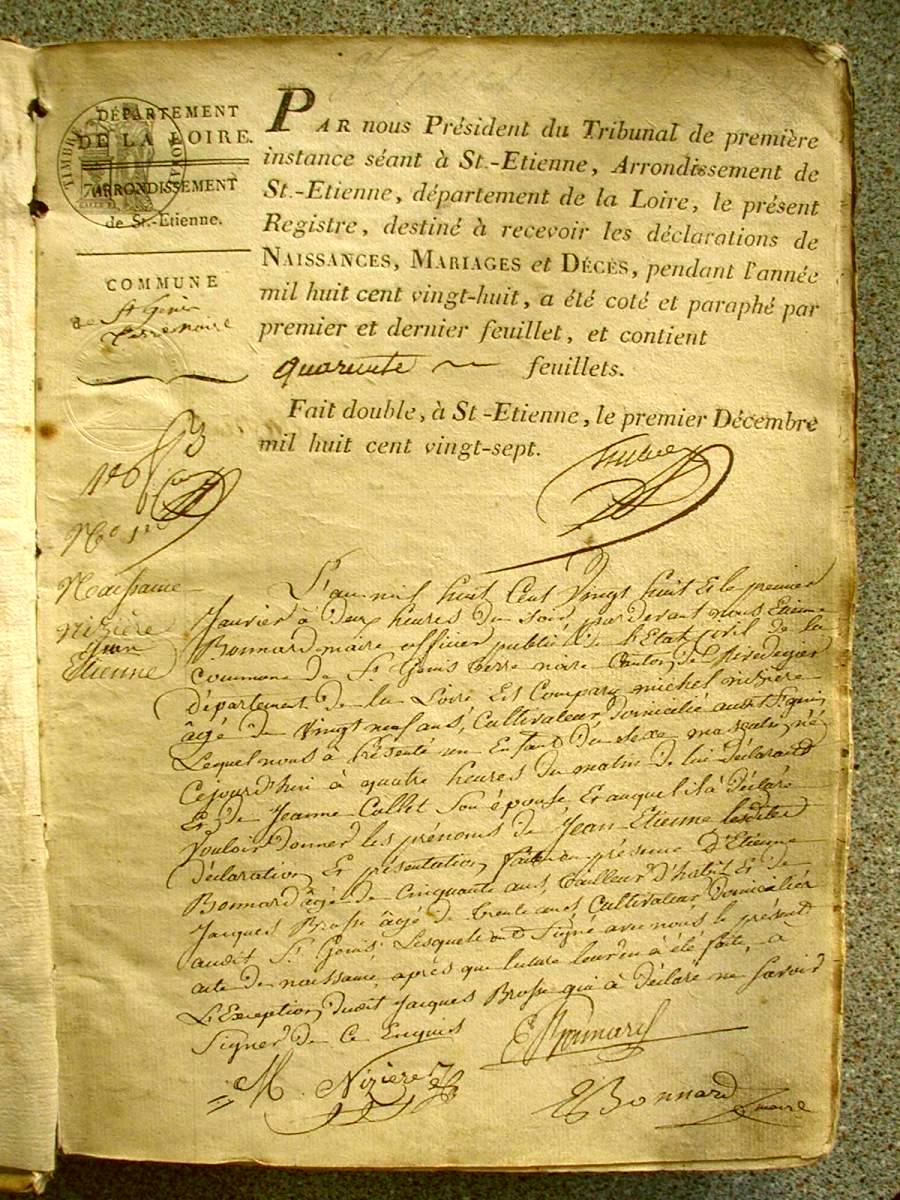 DÉPARTEMENT
DE LA LOIRE.
ARRONDISSEMENT
de St.-Etienne.
COMMUNE
de St Genis
Terrenoire
PAR nous Président du Tribunal de première
instance séant à St.-Etienne, Arrondissement de
St.-Etienne, département de la Loire, le présent
Registre, destiné à recevoir les déclarations de
NAISSANCES, MARIAGES et DÉCÈS, pendant l'année
mil huit cent vingt-huit, a été coté et paraphé par
premier et dernier feuillet, et contient
quarente feuillets.
Fait double, à St-Etienne, le premier Décembre
mil huit cent vingt-sept.
No 1er
Naissance
Nizière
Jean
Etienne
L'an mil huit Cent Vingt huit Et le premier
Janvier à deux heures du soir, par devant nous Etienne
Bonnard maire officier public de l'Etat civil de la
commune de St Genis terre noire Canton de Rivedegier
département de la Loire Est Comparu michel nizière
âgé de Vingt neuf ans, Cultivateur, domicilié audit St genis,
Lequel nous à Présenté un Enfant du sexe masculin, né
Cejourd'hui à quatre heures du matin de lui déclarant
Et de Jeanne Collet Son épouse, Et auquel il à déclaré
Vouloir donner les prénoms de Jean Etienne lesdites
déclaration Et présentation, faite en présence d'Etienne
Bonnard âgé de Cinquante ans, tailleur d'habit Et de
Jacques Brosse âgé de trente ans Cultivateur Domiciliés
audit St Genis, Lesquels ont Signé avec nous le présent
acte de naissance, après que lecture leur en à été faite, à
L'Exception dudit Jacques Brosse qui à déclaré ne Savoir
Signer de Ce Enquis
E Bonnard
M. Nizière
E Bonnard
maire